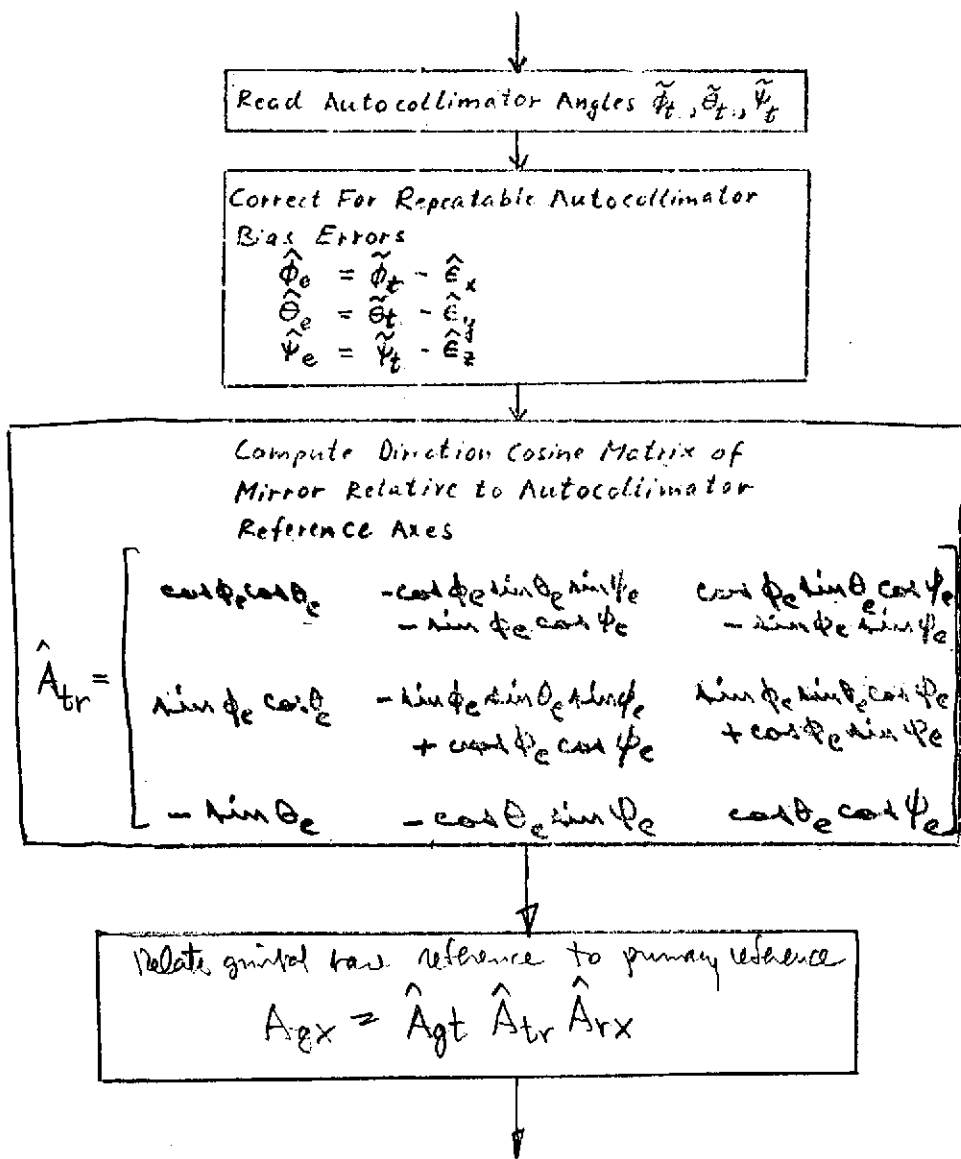 Read Autocollimator Angles φ̃_t, θ̃_t, ψ̃_t
Correct For Repeatable Autocollimator
Bias Errors
φ̂_e = φ̃_t - ε̂_x
θ̂_e = θ̃_t - ε̂_y
ψ̂_e = ψ̃_t - ε̂_z
Compute Direction Cosine Matrix of
Mirror Relative to Autocollimator
Reference Axes
cosφ_e cosθ_e -cosφ_e sinθ_e sinψ_e cosφ_e sinθ_e cosψ_e
- sinφ_e cosψ_e - sinφ_e sinψ_e
Â_tr =
sinφ_e cosθ_e -sinφ_e sinθ_e sinψ_e sinφ_e sinθ_e cosψ_e
+ cosφ_e cosψ_e + cosφ_e sinψ_e
- sinθ_e -cosθ_e sinψ_e cosθ_e cosψ_e
Relate gimbal base reference to primary reference
A_gx = Â_gt Â_tr Â_rx